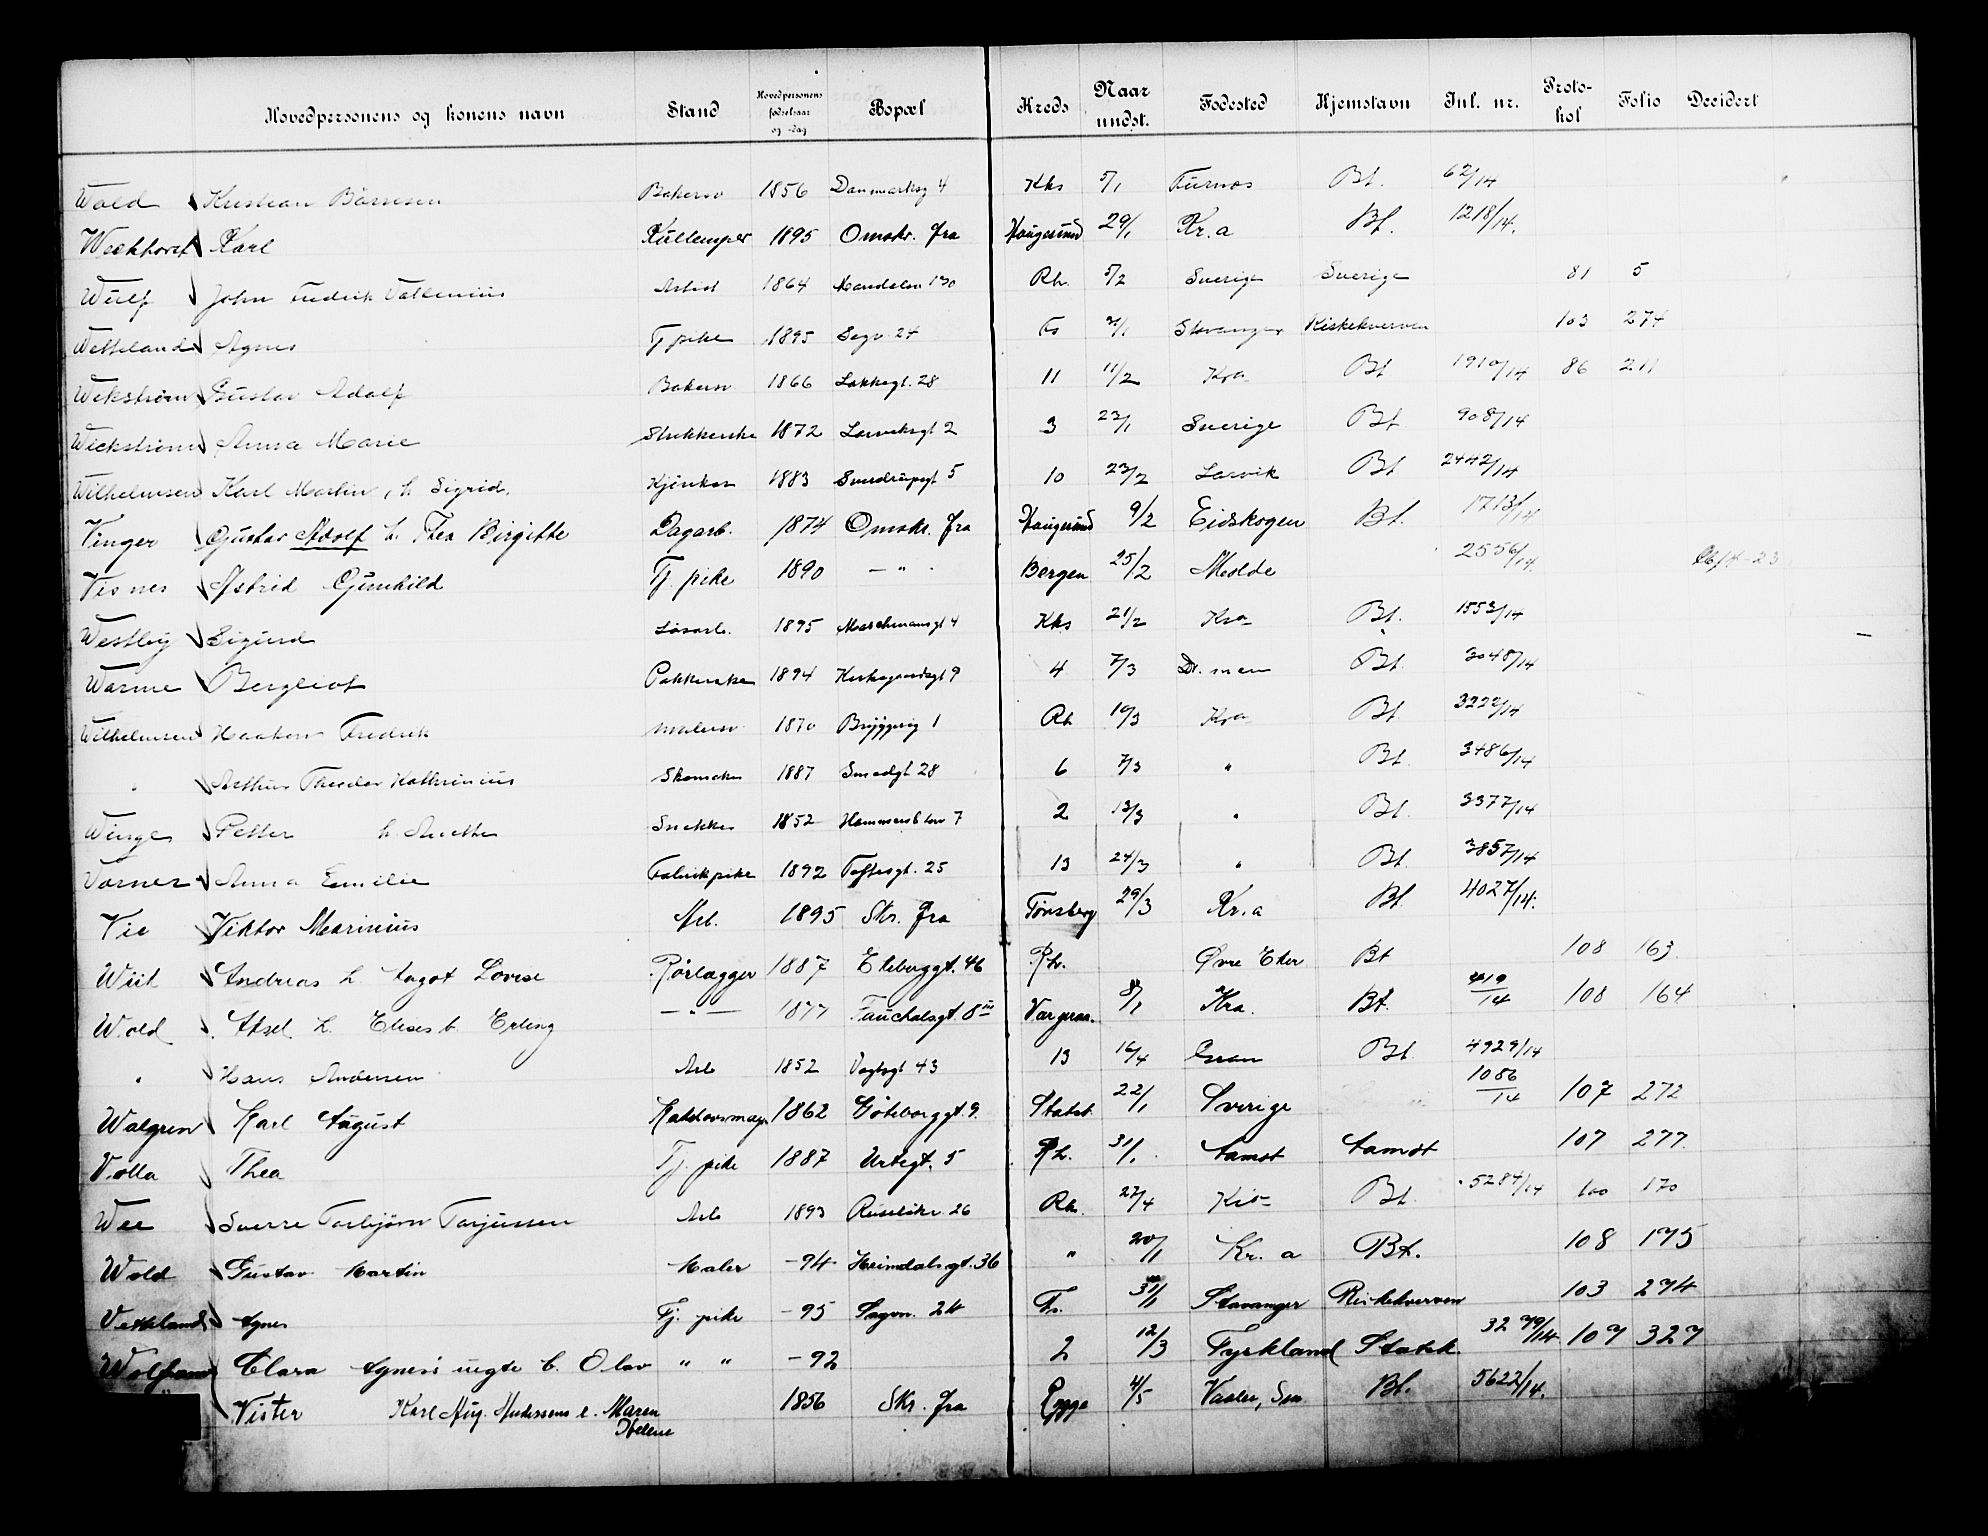 Hovedpersonens og konens navn Stand Hovedpersonens fødselsaar og -dag Bopæl Kreds Naar undst. Fødested Hjemstavn Inl. nr. Protokol Folio Decidert
Wold Kristian Børresen Bakersv 1856 Danmarksg 4 Kks 5/1 Furnes Bt. 62/14
Weckhorst Karl 1895 Omskr. fra Haugesund 29/1 Kr.a Bt. 1218/14.
Wulf John Fredrik 1864 Maridalsv 130 Rh. 5/2 Sverige Sverige 81 5
Wetteland Agnes Tj pike 1895 Sagv 24 Fs 31/1 Stavanger Riskekverven 103 274
Wekstrøm Gustav Adolf Bakersv 1866 Lakkegt. 28 11 11/2 Kra Bt 1910/14 86 211
Wickstrøm Anna Marie 1872 Larviksgt 2 3 23/1 Sverige Bt 908/14
Wilhelmsen Karl Martin, h Sigrid. Kjørekar 1883 Sundrupsgt 5 10 23/2 Larvik Bt 2442/14
Vinger Gustav Adolf h. Thea Birgitte Dagarb. 1874 Omskr. fra Haugesund 9/2 Eidskogen Bt. 1713/14
Visnes Astrid Gunhild Tj. pike 1890 — " — Bergen 25/2 Molde 2556/14.
Westby Sigurd Løsarb. 1895 4 Kks 21/2 Kra Bt. 1553/14
Warme Bergliot Pakkerske 1894 Kirkegaardsgt 9 4 7/3 Dr.men Bt. 3048/14
Wilhelmsen Haakon Fredrik Malersv 1870 Bryggerig 1 Rh 10/3 Kra Bt. 3222/14
" Arthur Theodor Kathrinius Skomaker 1887 Smedgt 28 6 7/3 " Bt. 3486/14
Winge Petter h. Anette Snekker 1852 Hammersb torv 7 2 13/3 " Bt. 3377/14
Varner Anna Emilie Fabrikpike 1892 Toftesgt. 25 13 24/3 " Bt 3857/14
Vie Viktor Marinius Arb. 1895 Skr. fra Tønsberg 29/3 Kr.a Bt. 4027/14.
Wiit Andreas h Aagot Lovise Rørlægger 1887 Ekeberggt. 46 Rh. Øvre Eker Bt 108 163
Wold Aksel h. Elise b. Erling — " — 1877 Fauchalsgt. 8 III 8/1 Kra. Bt. 419/14 108 164
" Hans Andersen Arb 1852 Vogtsgt 43 13 16/4 Gran Bt. 4929/14
Walgren Karl August 1862 Göteborggt. 9. Statst. 22/1 Sverige 1086/14 107 272
Volla Thea Tj. pike 1887 Urtegt. 5 Rh. 31/1 Aamot Aamot 107 277.
Wee Sverre Torbjørn Torjussen Arb 1893 Ruseløkv. 26 Rh. 27/4 Bt. 5284/14 100 170
Wold Gustav Martin Maler -94 Heimdalsgt. 36 " 20/1 Kr. a Bt. 108 175
Vetteland Agnes Tj. pike -95 Sagvn. 24 Fs. 31/1 Stavanger Riskekverven 103 274
Wolfram Clara Agnes ugte b. Olav " " -92 2 12/3 Tyskland Statsk. 3279/14 107 327
Vister Karl Aug. Anderssens e. Maren Helene 1856 Skr. fra Rygge 4/5 Vaaler, Sm Bt. 5622/14.